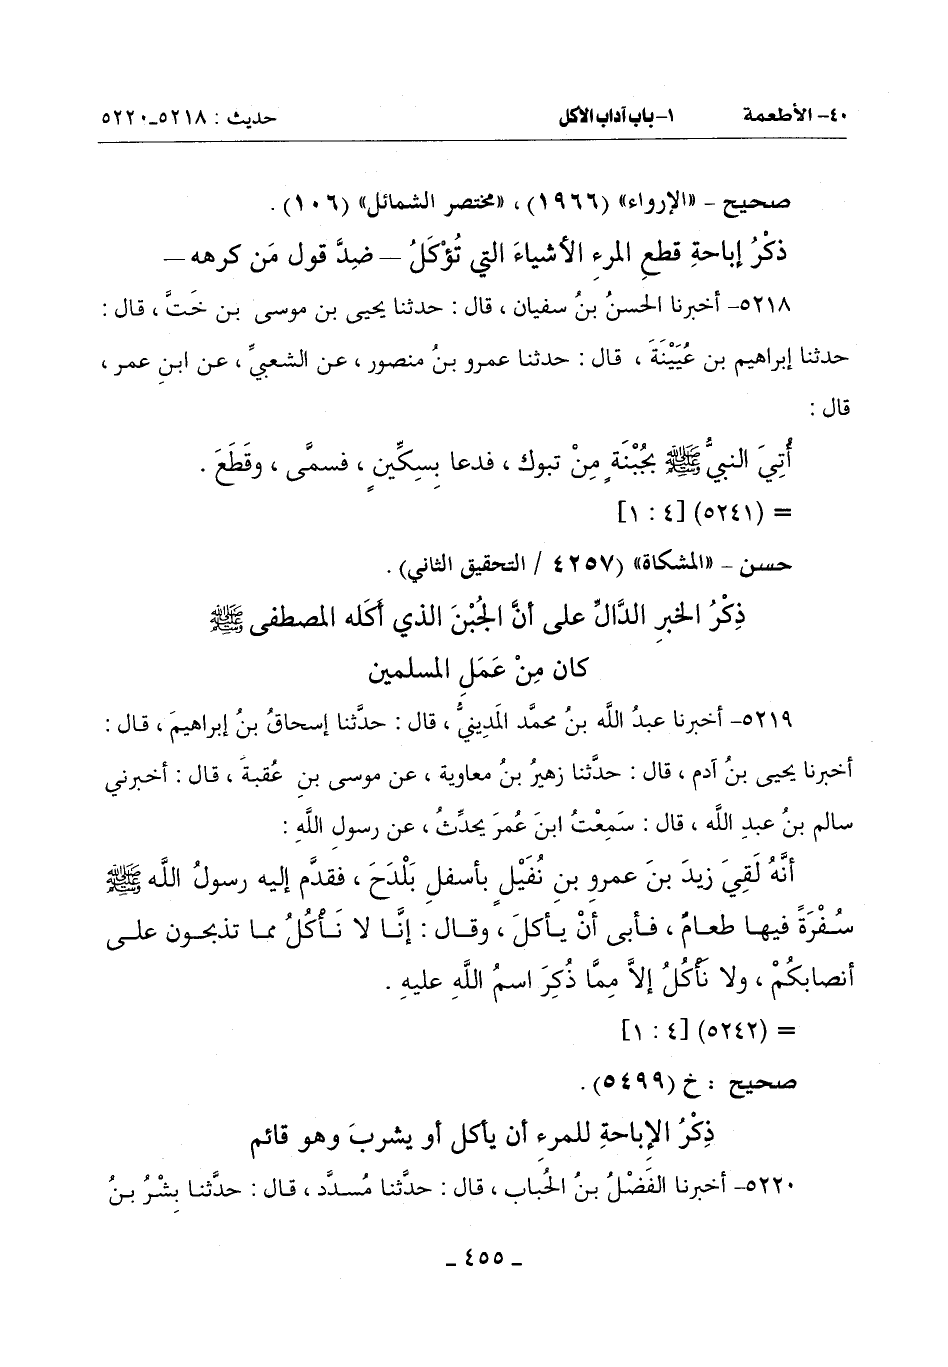 ٤٠- الأطعمة ١- باب آداب الأكل حديث : ٥٢١٨-٥٢٢٠
صحيح - «الإرواء» (١٩٦٦) ، «مختصر الشمائل» (١٠٦) .
ذكْرُ إباحةِ قطعِ المرءِ الأشياءَ التي تُؤْكَلُ – ضِدَّ قول مَن كرهه –
٥٢١٨- أخبرنا الحسنُ بنُ سفيان ، قال : حدثنا يحيى بن موسى بن خَتَّ ، قال :
حدثنا إبراهيم بن عُيَيْنَةَ ، قال : حدثنا عمرو بنُ منصور ، عن الشعبيِّ ، عن ابنِ عمر ،
قال :
أُتِيَ النبيُّ ﷺ بجُبْنَةٍ مِنْ تبوك ، فدعا بِسِكِّينٍ ، فسمَّى ، وقَطَعَ .
= (٥٢٤١) [٤ : ١]
حسن - «المشكاة» (٤٢٥٧ / التحقيق الثاني) .
ذِكْرُ الخبرِ الدَّالِّ على أنَّ الجُبْنَ الذي أَكَله المصطفى ﷺ
كان مِنْ عَمَلِ المسلمين
٥٢١٩- أخبرنا عبدُ اللَّه بنُ محمَّد المَدِينيُّ ، قال : حدَّثنا إسحاقُ بنُ إبراهيمَ ، قال :
أخبرنا يحيى بنُ آدم ، قال : حدَّثنا زهيرُ بنُ معاوية ، عن موسى بنِ عُقبةَ ، قال : أخبرني
سالم بنُ عبدِ اللَّه ، قال : سَمِعْتُ ابنَ عُمرَ يحدِّثُ ، عن رسولِ اللَّهِ :
أنَّهُ لَقِيَ زيدَ بنَ عمرِو بنِ نُفَيْلٍ بأسفلِ بَلْدَحَ ، فقدَّم إليه رسولُ اللَّه ﷺ
سُفْرَةً فيها طعامٌ ، فأبى أنْ يأكلَ ، وقال : إنَّا لا نَأْكُلُ مما تذبحون على
أنصابكُمْ ، ولا نَأْكُلُ إلاَّ مِمَّا ذُكِرَ اسمُ اللَّهِ عليهِ .
= (٥٢٤٢) [٤ : ١]
صحيح : خ (٥٤٩٩) .
ذِكْرُ الإباحةِ للمرءِ أن يأكل أو يشربَ وهو قائم
٥٢٢٠- أخبرنا الفَضْلُ بنُ الحُباب ، قال : حدَّثنا مُسدَّد ، قال : حدَّثنا بِشْرُ بنُ
- ٤٥٥ -